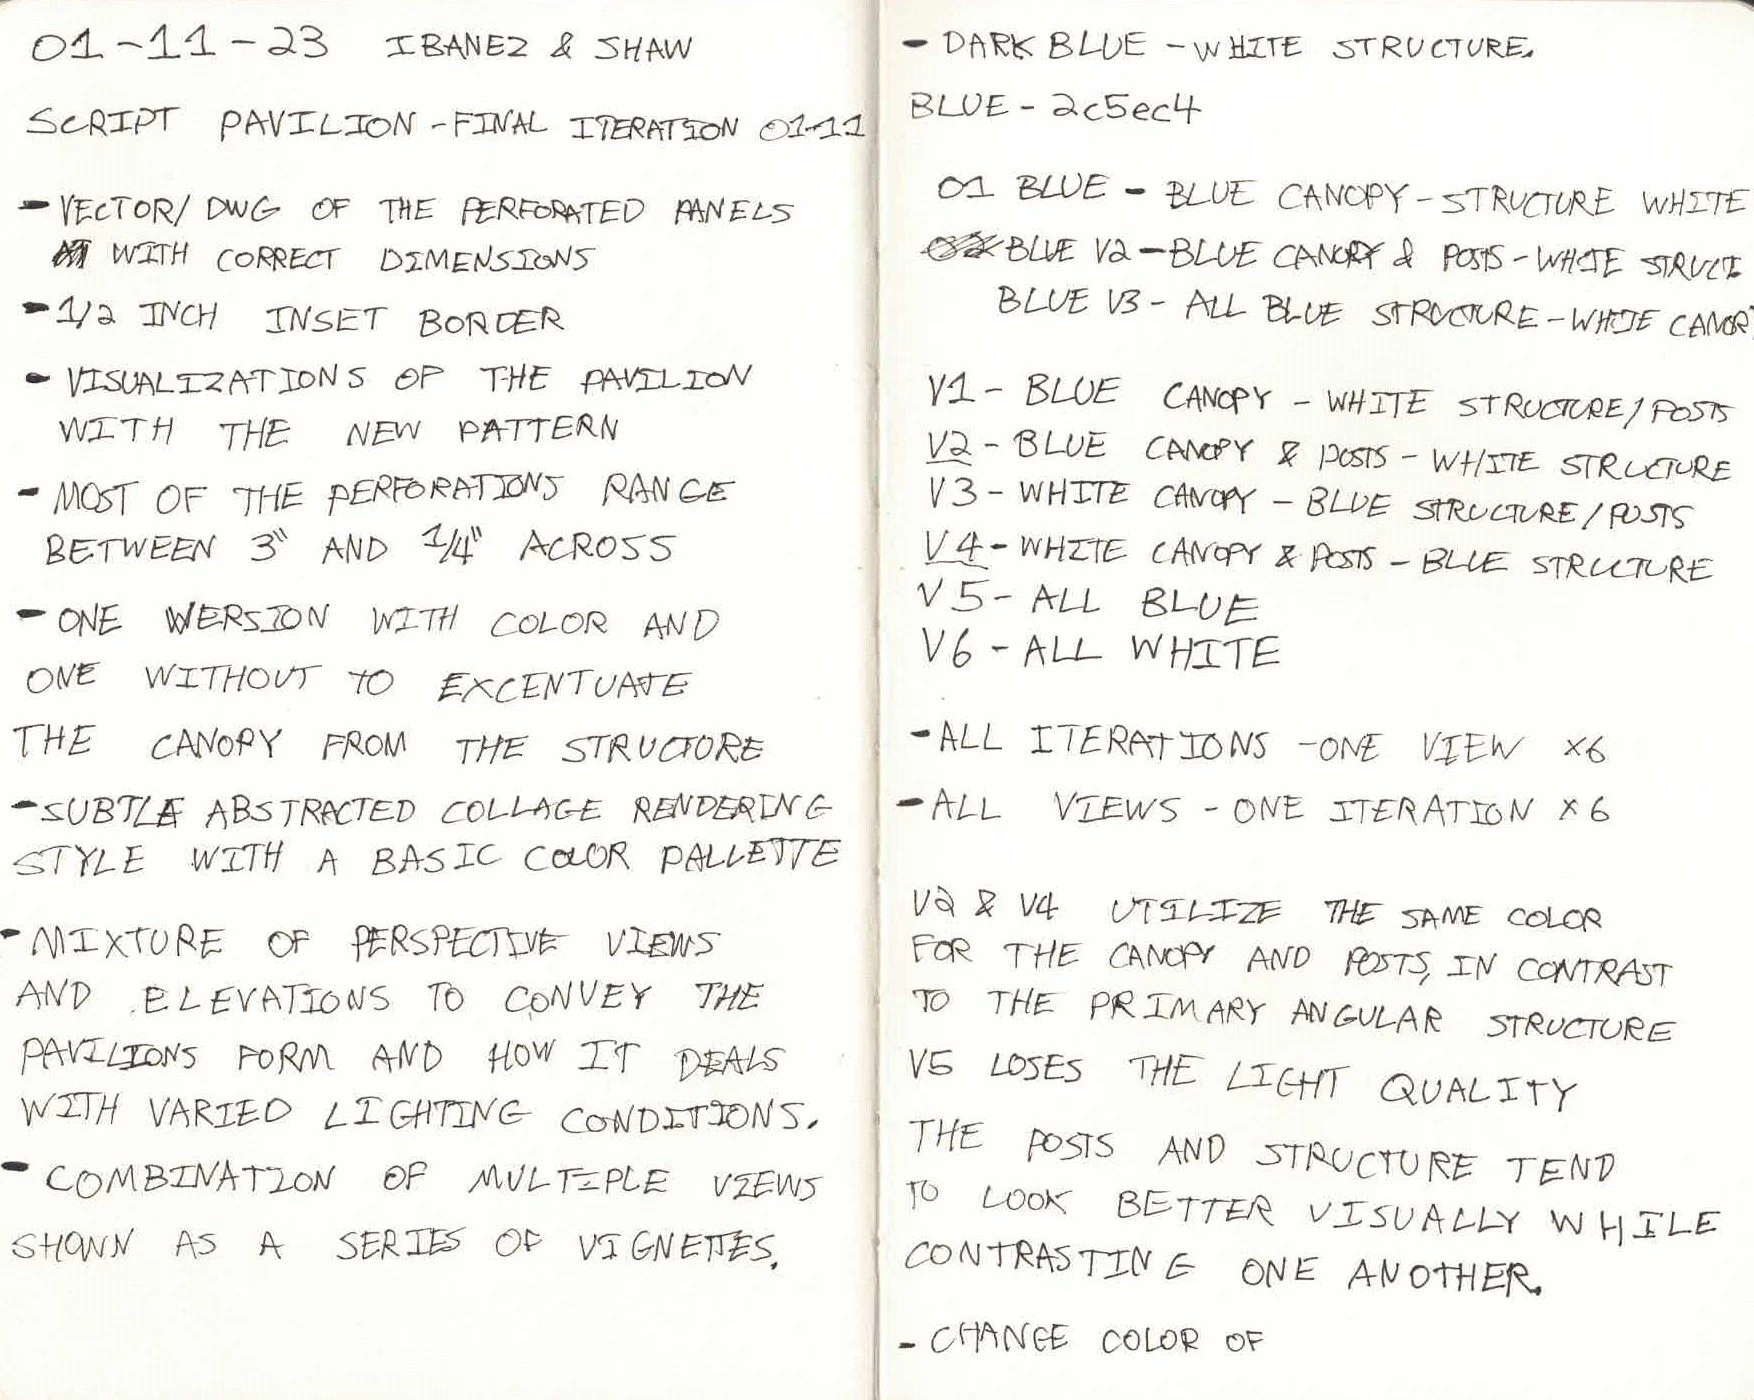 01-11-23 IBANEZ & SHAW
SCRIPT PAVILION - FINAL ITERATION 01-11
- VECTOR/DWG OF THE PERFORATED PANELS
WITH CORRECT DIMENSIONS
- 1/2 INCH INSET BORDER
- VISUALIZATIONS OF THE PAVILION
WITH THE NEW PATTERN
- MOST OF THE PERFORATIONS RANGE
BETWEEN 3" AND 1/4" ACROSS
- ONE VERSION WITH COLOR AND
ONE WITHOUT TO EXCENTUATE
THE CANOPY FROM THE STRUCTURE
- SUBTLE ABSTRACTED COLLAGE RENDERING
STYLE WITH A BASIC COLOR PALLETTE
- MIXTURE OF PERSPECTIVE VIEWS
AND ELEVATIONS TO CONVEY THE
PAVILIONS FORM AND HOW IT DEALS
WITH VARIED LIGHTING CONDITIONS.
- COMBINATION OF MULTIPLE VIEWS
SHOWN AS A SERIES OF VIGNETTES.
- DARK BLUE - WHITE STRUCTURE.
BLUE - 2c5ec4
01 BLUE - BLUE CANOPY - STRUCTURE WHITE
BLUE V2 - BLUE CANOPY & POSTS - WHITE STRUCT
BLUE V3 - ALL BLUE STRUCTURE - WHITE CANOP
V1 - BLUE CANOPY - WHITE STRUCTURE/POSTS
V2 - BLUE CANOPY & POSTS - WHITE STRUCTURE
V3 - WHITE CANOPY - BLUE STRUCTURE/POSTS
V4 - WHITE CANOPY & POSTS - BLUE STRUCTURE
V5 - ALL BLUE
V6 - ALL WHITE
- ALL ITERATIONS - ONE VIEW x6
- ALL VIEWS - ONE ITERATION x6
V2 & V4 UTILIZE THE SAME COLOR
FOR THE CANOPY AND POSTS, IN CONTRAST
TO THE PRIMARY ANGULAR STRUCTURE
V5 LOSES THE LIGHT QUALITY
THE POSTS AND STRUCTURE TEND
TO LOOK BETTER VISUALLY WHILE
CONTRASTING ONE ANOTHER.
- CHANGE COLOR OF